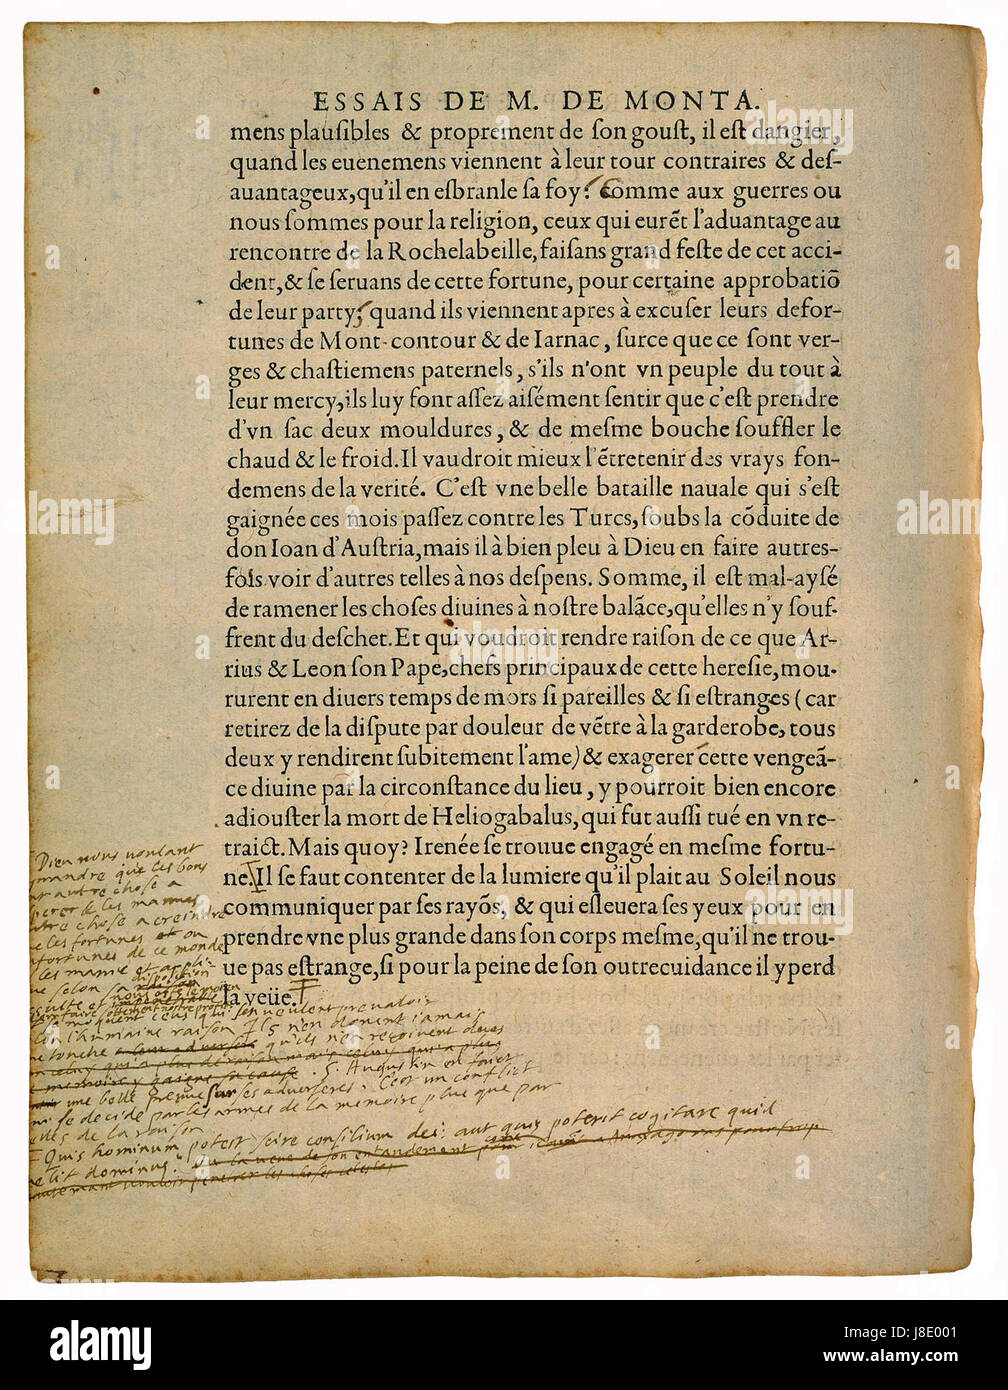 ESSAIS DE M. DE MONTA.
mens plausibles & proprement de son goust, il est dangier,
quand les euenemens viennent à leur tour contraires & des-
auantageux, qu'il en esbranle sa foy: Comme aux guerres ou
nous sommes pour la religion, ceux qui eurẽt l'aduantage au
rencontre de la Rochelabeille, faisans grand feste de cet acci-
dent, & se seruans de cette fortune, pour certaine approbatiõ
de leur party; quand ils viennent apres à excuser leurs defor-
tunes de Mont-contour & de Iarnac, surce que ce sont ver-
ges & chastiemens paternels, s'ils n'ont vn peuple du tout à
leur mercy, ils luy font assez aisément sentir que c'est prendre
d'vn sac deux mouldures, & de mesme bouche souffler le
chaud & le froid. Il vaudroit mieux l'ẽtretenir des vrays fon-
demens de la verité. C'est vne belle bataille nauale qui s'est
gaignée ces mois passez contre les Turcs, soubs la cõduite de
don Ioan d'Austria, mais il à bien pleu à Dieu en faire autres-
fois voir d'autres telles à nos despens. Somme, il est mal-aysé
de ramener les choses diuines à nostre balãce, qu'elles n'y souf-
frent du deschet. Et qui voudroit rendre raison de ce que Ar-
rius & Leon son Pape, chefs principaux de cette heresie, mou-
rurent en diuers temps de mors si pareilles & si estranges (car
retirez de la dispute par douleur de vẽtre à la garderobe, tous
deux y rendirent subitement l'ame) & exagerer cette vengeã-
ce diuine par la circonstance du lieu, y pourroit bien encore
adiouster la mort de Heliogabalus, qui fut aussi tué en vn re-
traict. Mais quoy? Irenée se trouue engagé en mesme fortu-
ne. Il se faut contenter de la lumiere qu'il plait au Soleil nous
communiquer par ses rayõs, & qui esleuera ses yeux pour en
prendre vne plus grande dans son corps mesme, qu'il ne trou-
ue pas estrange, si pour la peine de son outrecuidance il y perd
la veüe.
Dieu nous voulant
que les bons
autre chose a
les mauves
chose a creindre
les fortunes et ou
fortunes de ce monde
les manie et apli
selon sa disposition
nous oste le moien
sottement nostre
moquent ceus qui s'en veulent prevaloir
l'humaine raison Ils n'en donent jamais
touche qu'ils n'en reçoivent deus
S. Augustin en faict
une belle preuve sur ses adversères. C'est un conflict
se decide par les armes de la memoire plus que par
de la raison
Quis hominum potest scire consilium dei: aut quis poterit cogitare quid
lit dominus
alamy stock photo
Image ID: J8E001
www.alamy.com